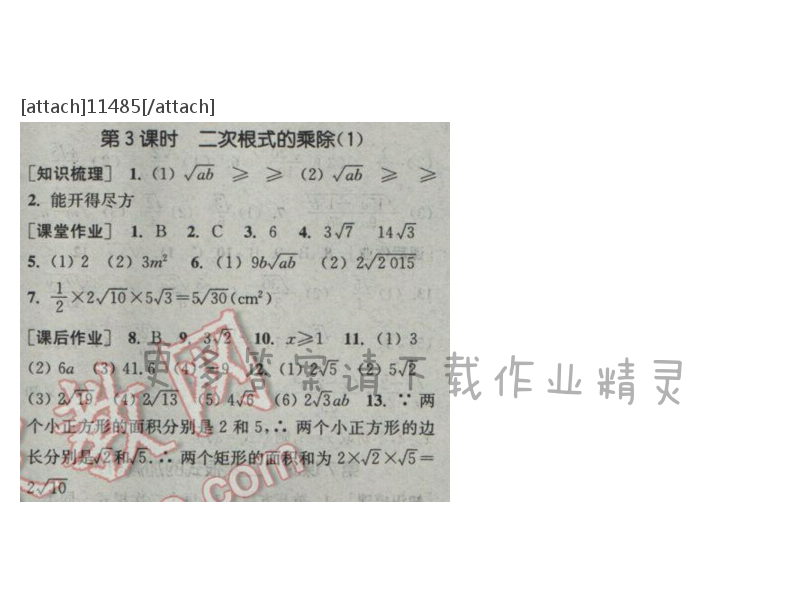 [attach]11485[/attach]
第3课时 二次根式的乘除(1)
[知识梳理] 1. (1) √ab ≥ ≥ (2) √ab ≥ ≥
2. 能开得尽方
[课堂作业] 1. B 2. C 3. 6 4. 3√7 14√3
5. (1) 2 (2) 3m² 6. (1) 9b√ab (2) 2√2 015
7. 1/2×2√10×5√3=5√30(cm²)
[课后作业] 8. B 9. 3√2 10. x≥1 11. (1) 3
(2) 6a (3) 41.6 (4) -9 12. (1) 2√5 (2) 5√2
(3) 2√19 (4) 2√13 (5) 4√6 (6) 2√3ab 13. ∵ 两
个小正方形的面积分别是2和5,∴ 两个小正方形的边
长分别是√2和√5.∴ 两个矩形的面积和为2×√2×√5=
2√10
更多答案请下载作业精灵